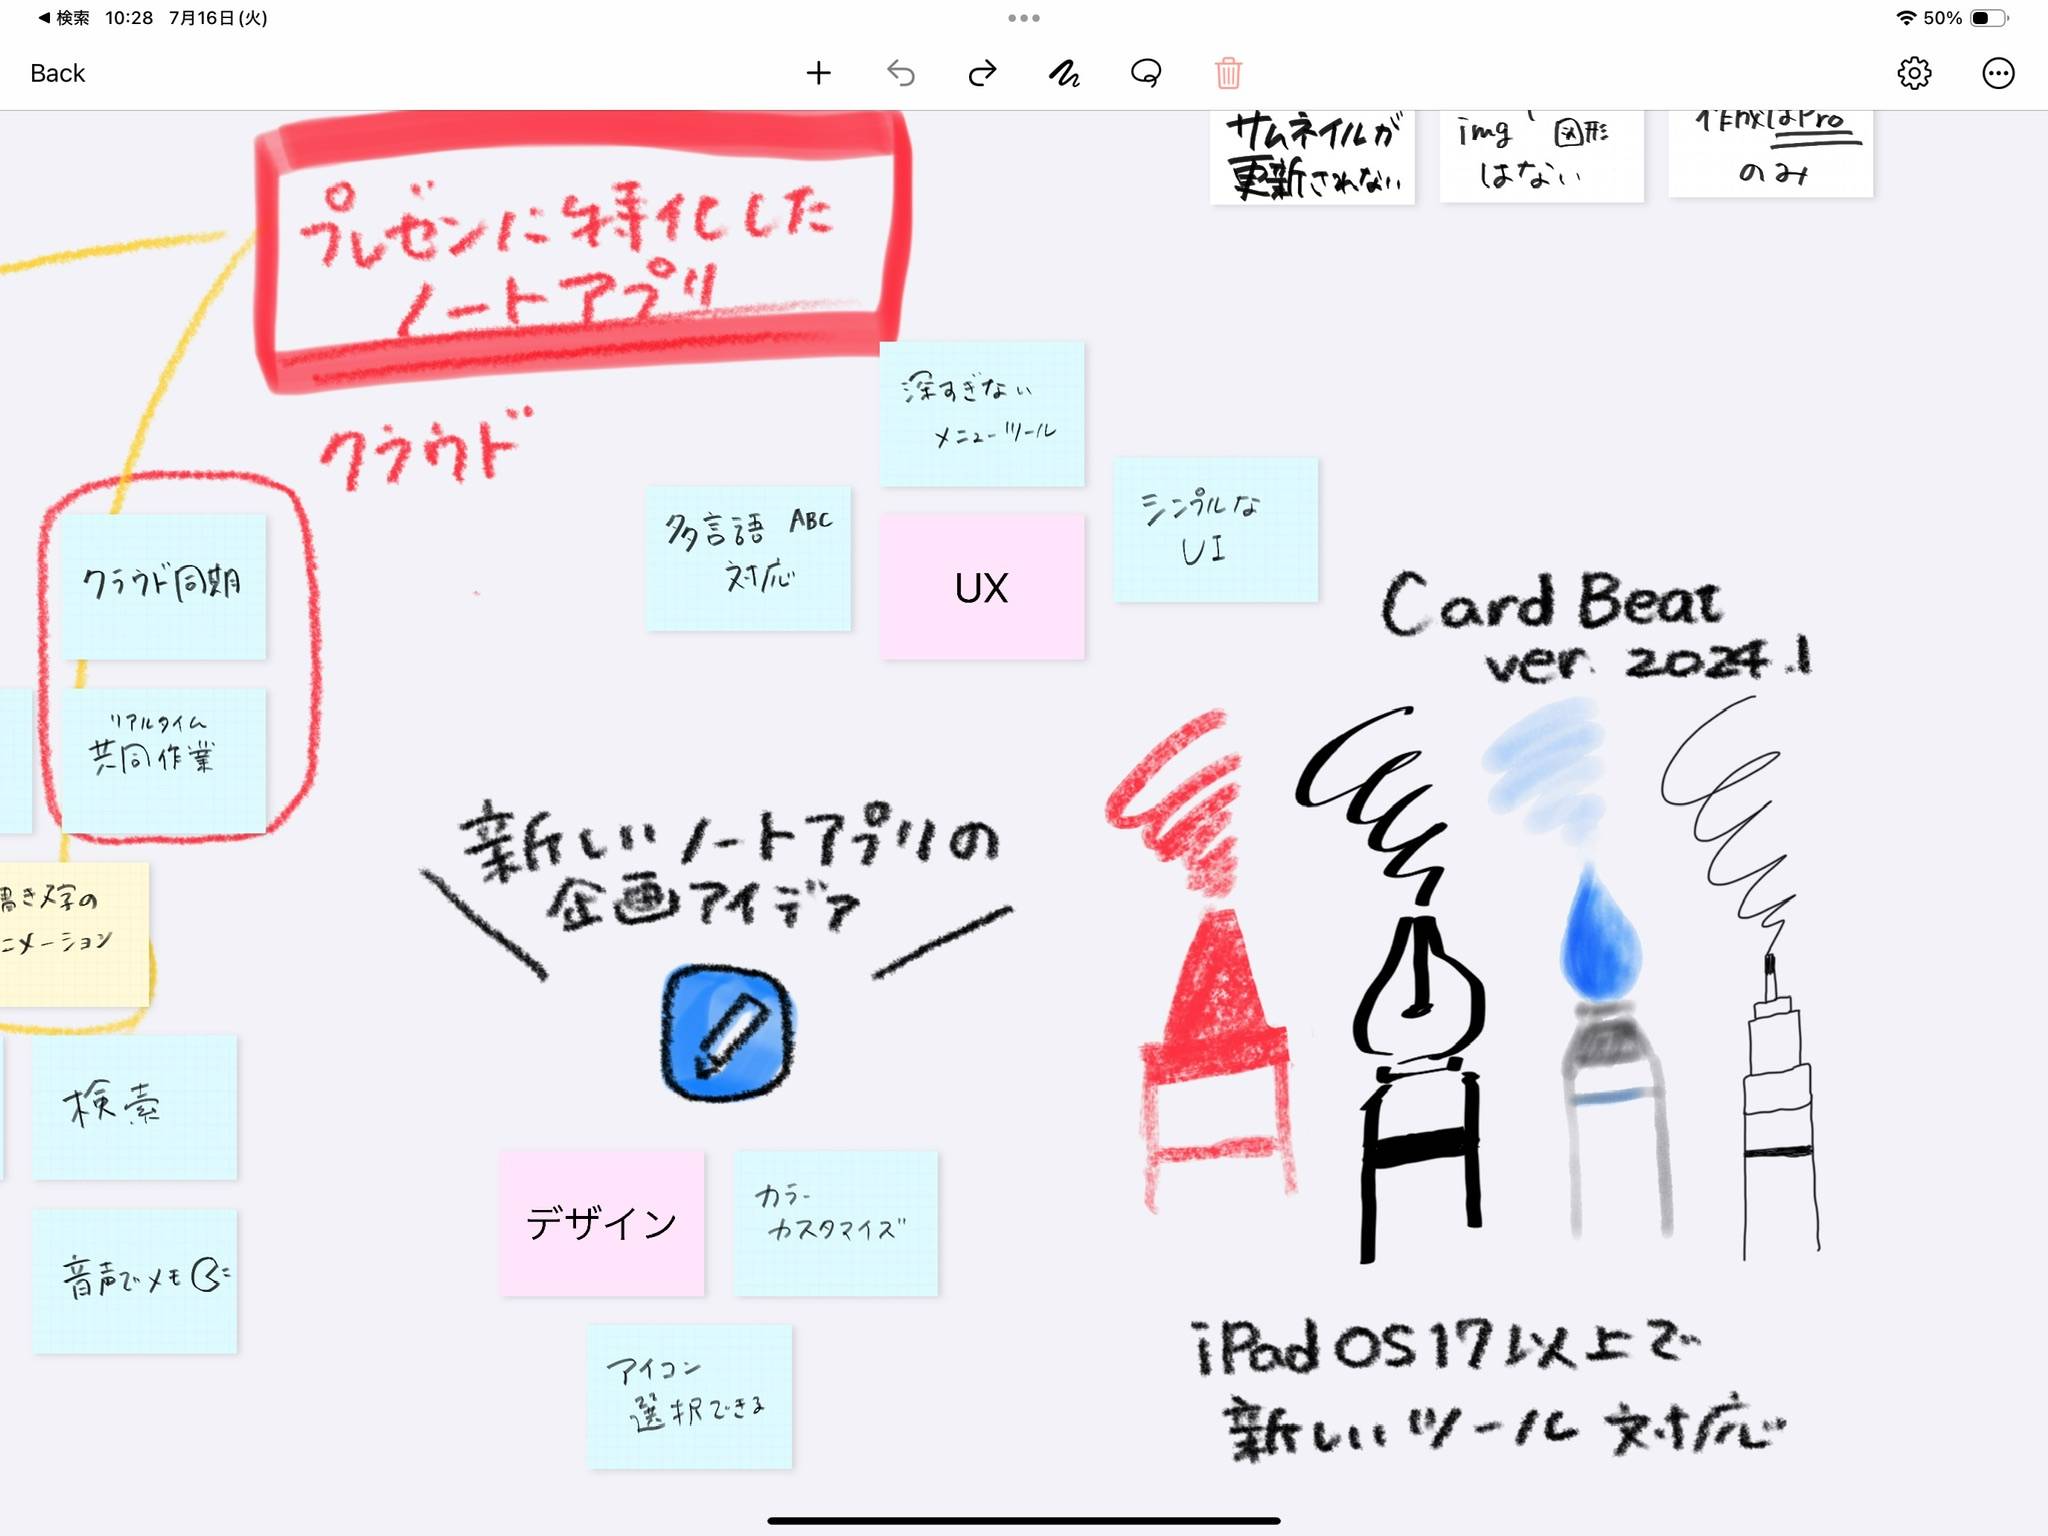 検索 10:28 7月16日(火)
50%
Back
サムネイルが
更新されない
img 図形
はない
作成はPro
のみ
プレゼンに特化した
ノートアプリ
クラウド
深すぎない
メニューツール
多言語 ABC
対応
シンプルな
UI
UX
クラウド同期
リアルタイム
共同作業
Card Beat
ver. 2024.1
新しいノートアプリの
企画アイデア
書き文字の
ニメーション
検索
音声でメモ
デザイン
カラー
カスタマイズ
アイコン
選択できる
iPad OS 17 以上で
新しいツール 対応